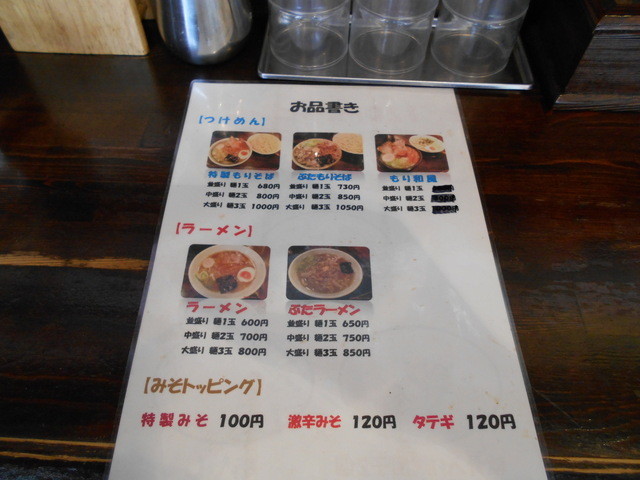 お品書き
【つけめん】
特製もりそば ぶたもりそば もり和風
並盛り 麺1玉 680円 並盛り 麺1玉 730円 並盛り 麺1玉
中盛り 麺2玉 800円 中盛り 麺2玉 850円 中盛り 麺2玉
大盛り 麺3玉 1000円 大盛り 麺3玉 1050円 大盛り 麺3玉
【ラーメン】
ラーメン ぶたラーメン
並盛り 麺1玉 600円 並盛り 麺1玉 650円
中盛り 麺2玉 700円 中盛り 麺2玉 750円
大盛り 麺3玉 800円 大盛り 麺3玉 850円
【みそトッピング】
特製みそ 100円 激辛みそ 120円 タテギ 120円